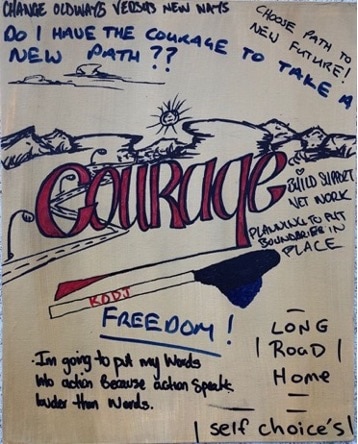 CHANGE OLDWAYS VERSUS NEW WAYS
DO I HAVE THE COURAGE TO TAKE A
NEW PATH??
CHOOSE PATH TO
NEW FUTURE!
Courage
BUILD SUPPORT
NETWORK
PLANNING TO PUT
BOUNDARIES IN
PLACE
FREEDOM!
I'm going to put my Words
into action Because action Speaks
louder than Words.
LONG
ROAD
Home
self choice's